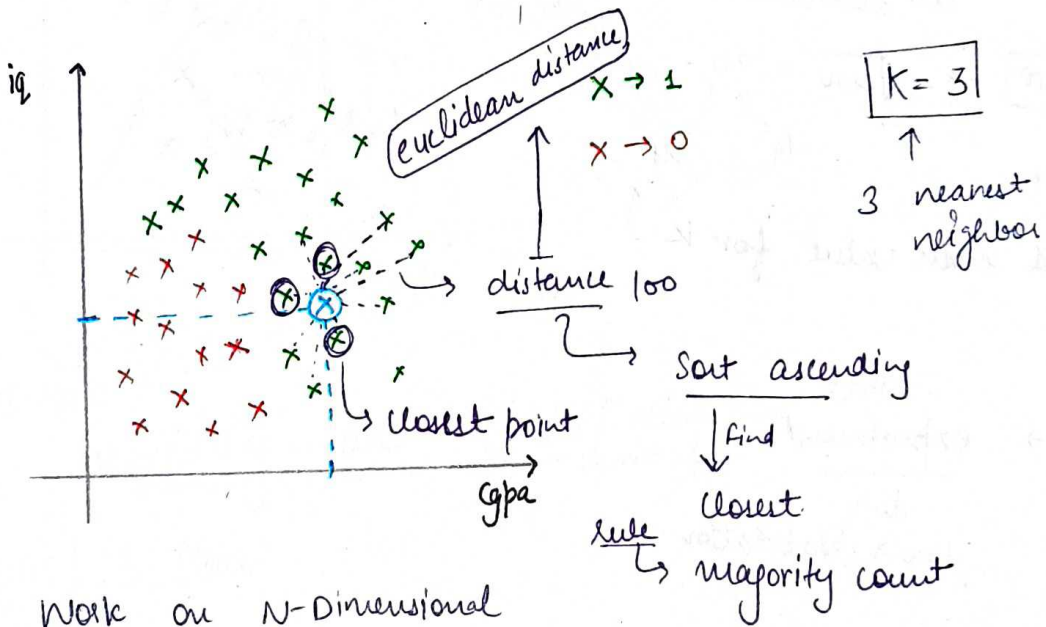 iq
euclidean distance
x → 1
x → 0
K = 3
3 nearest
neighbor
distance 100
Sort ascending
find
closest point
cgpa
Closest
rule
majority count
Work on N-Dimensional